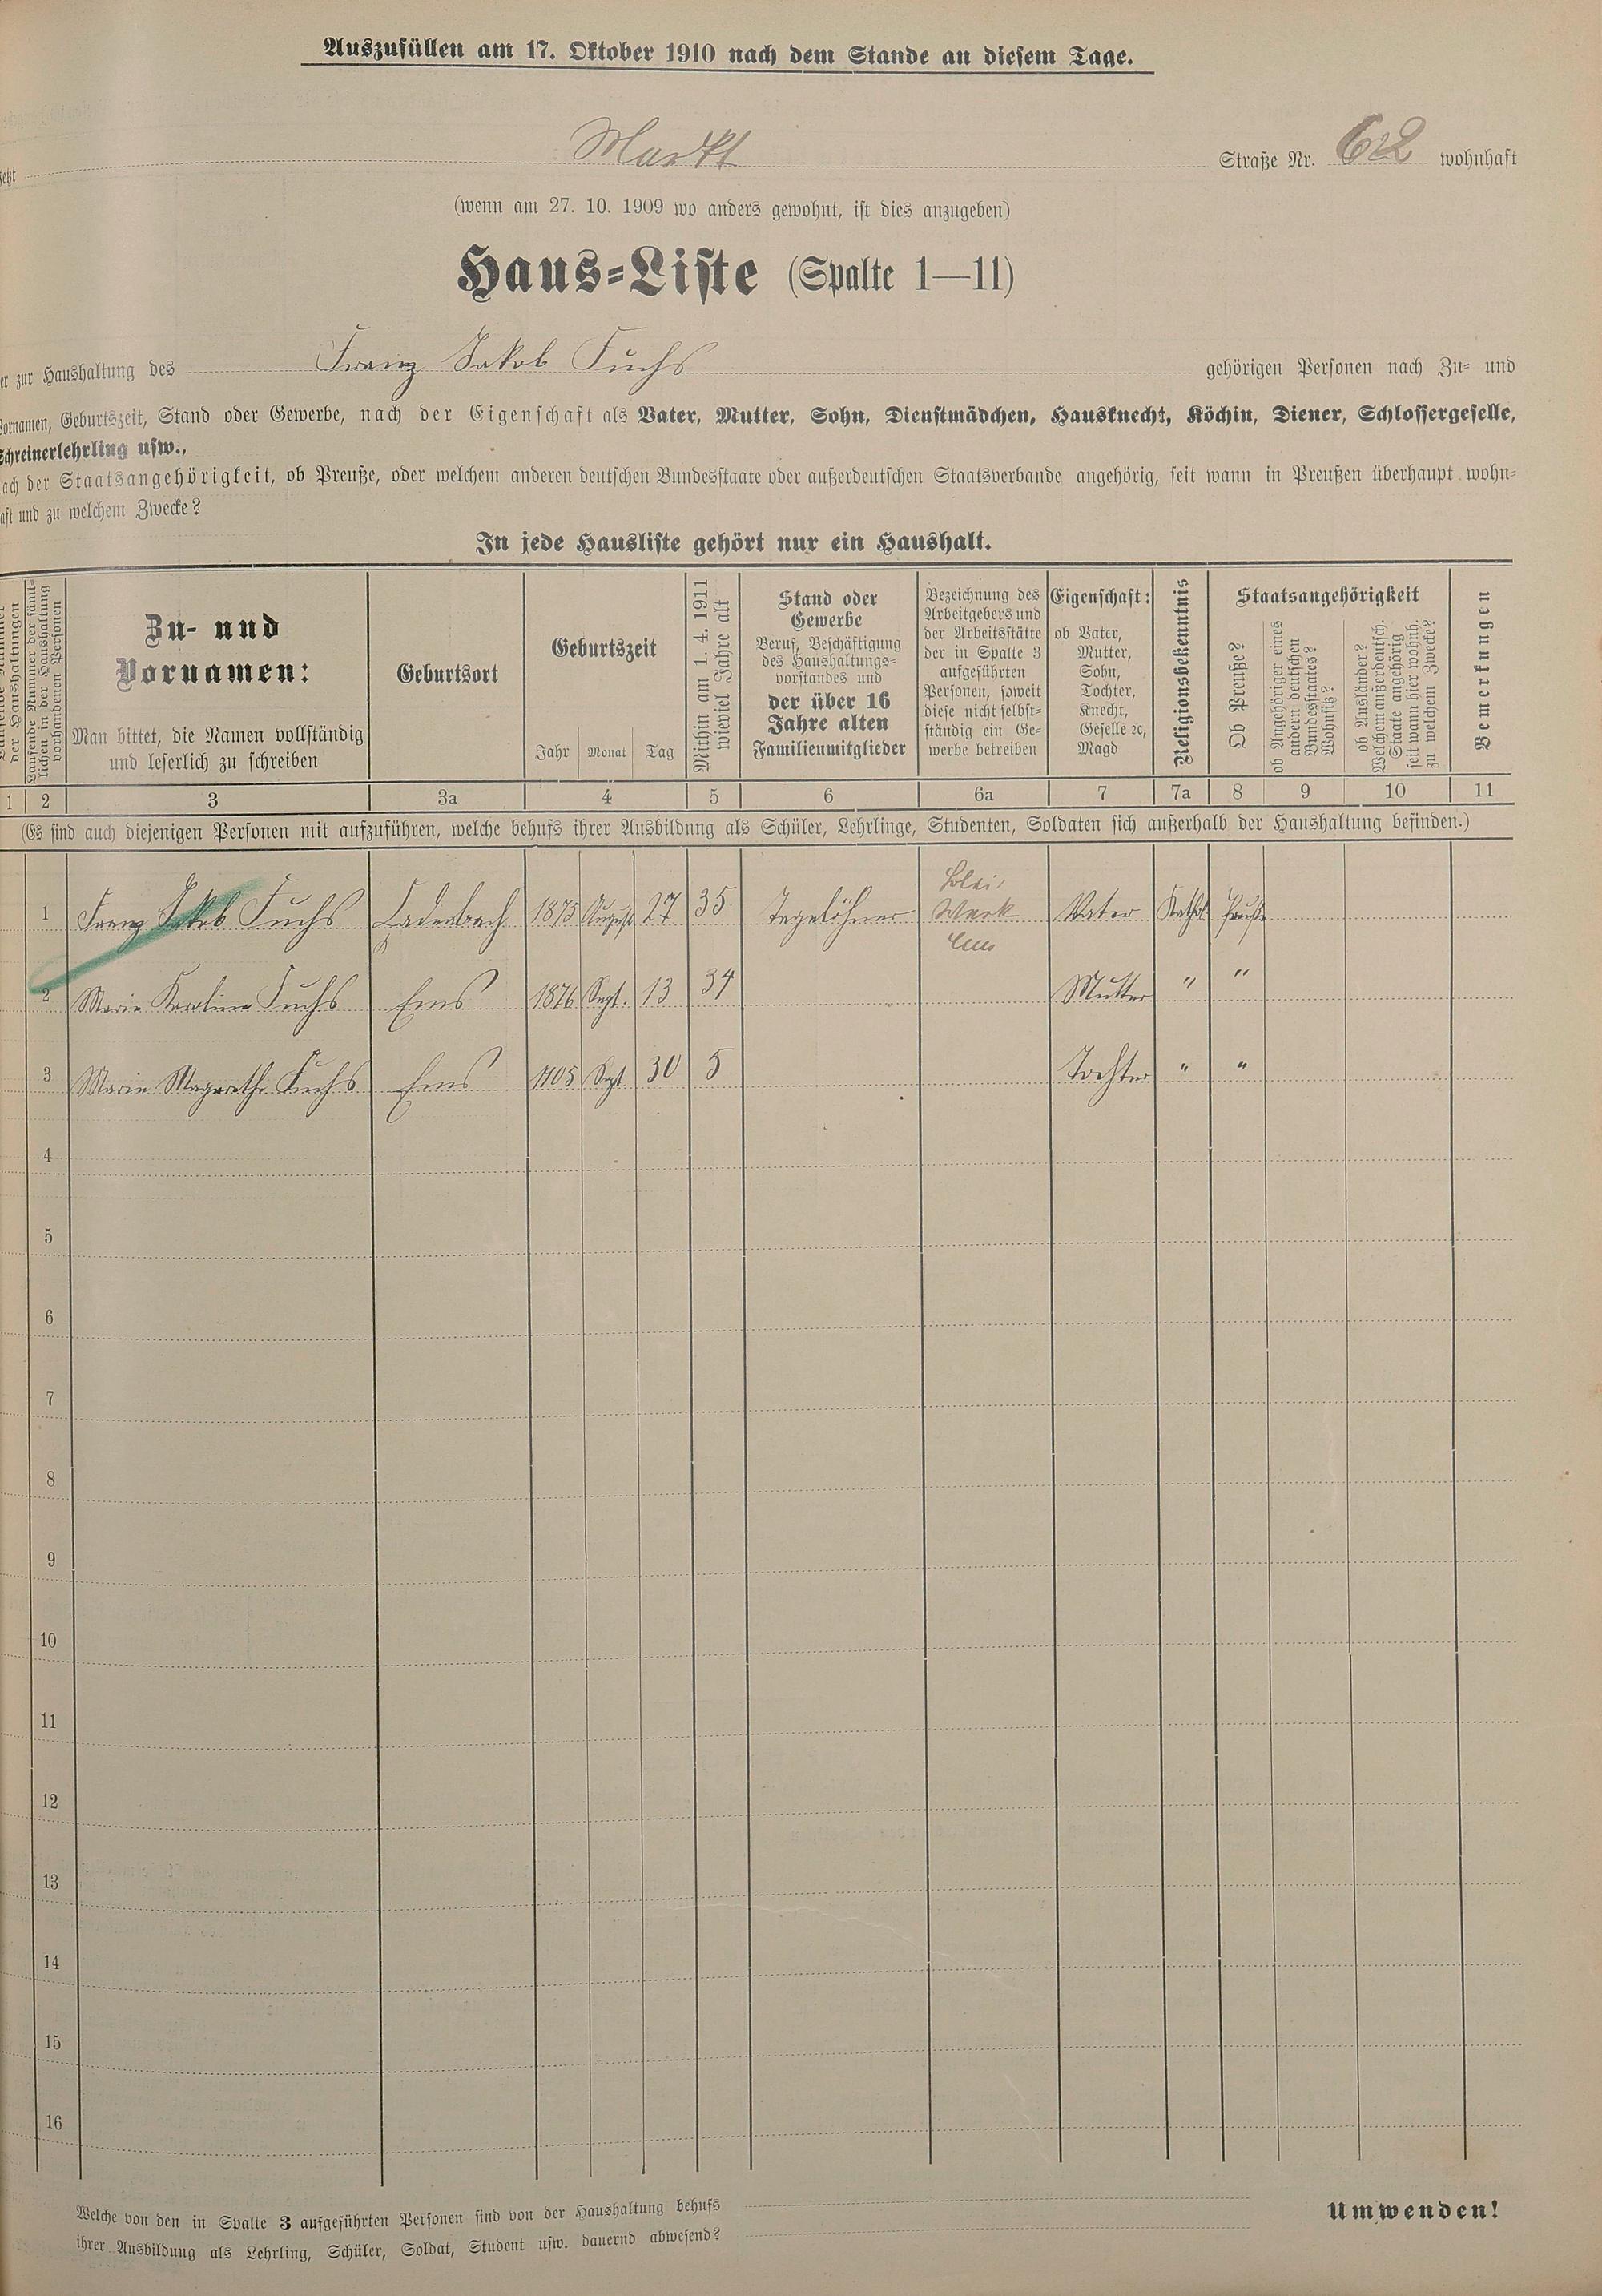 Auszufüllen am 17. Oktober 1910 nach dem Stande an diesem Tage.
jetzt Markt Straße Nr. 62 wohnhaft
(wenn am 27. 10. 1909 wo anders gewohnt, ist dies anzugeben)
Haus-Liste (Spalte 1—11)
er zur Haushaltung des Franz Jakob Fuchs gehörigen Personen nach Zu- und
Vornamen, Geburtszeit, Stand oder Gewerbe, nach der Eigenschaft als Vater, Mutter, Sohn, Dienstmädchen, Hausknecht, Köchin, Diener, Schlossergeselle,
Schreinerlehrling usw.,
nach der Staatsangehörigkeit, ob Preuße, oder welchem anderen deutschen Bundesstaate oder außerdeutschen Staatsverbande angehörig, seit wann in Preußen überhaupt wohn-
haft und zu welchem Zwecke?
In jede Hausliste gehört nur ein Haushalt.
der Haushaltungen
Laufende Nummer der sämt-
lichen in der Haushaltung
vorhandenen Personen
Zu- und
Vornamen:
Man bittet, die Namen vollständig
und leserlich zu schreiben
Geburtsort
Geburtszeit
Jahr Monat Tag
Mithin am 1. 4. 1911
wieviel Jahre alt
Stand oder
Gewerbe
Beruf, Beschäftigung
des Haushaltungs-
vorstandes und
der über 16
Jahre alten
Familienmitglieder
Bezeichnung des
Arbeitgebers und
der Arbeitsstätte
der in Spalte 3
aufgeführten
Personen, soweit
diese nicht selbst-
ständig ein Ge-
werbe betreiben
Eigenschaft:
ob Vater,
Mutter,
Sohn,
Tochter,
Knecht,
Geselle ec,
Magd
Religionsbekenntnis
Staatsangehörigkeit
Ob Preuße?
ob Angehöriger eines
andern deutschen
Bundesstaates?
Wohnsitz?
ob Ausländer?
Welchem außerdeutsch.
Staate angehörig
seit wann hier wohnh.
zu welchem Zwecke?
Bemerkungen
1 2 3 3a 4 5 6 6a 7 7a 8 9 10 11
(Es sind auch diejenigen Personen mit aufzuführen, welche behufs ihrer Ausbildung als Schüler, Lehrlinge, Studenten, Soldaten sich außerhalb der Haushaltung befinden.)
1 Franz Jakob Fuchs Ladenbach 1875 August 27 35 Tagelöhner Blei Werk Ems Vater Kathol Preuße
2 Maria Karolina Fuchs Ems 1876 Sept. 13 34 Mutter " "
3 Maria Magarethe Fuchs Ems 1905 Sept 30 5 Tochter " "
4
5
6
7
8
9
10
11
12
13
14
15
16
Welche von den in Spalte 3 aufgeführten Personen sind von der Haushaltung behufs
ihrer Ausbildung als Lehrling, Schüler, Soldat, Student usw. dauernd abwesend?
Umwenden!